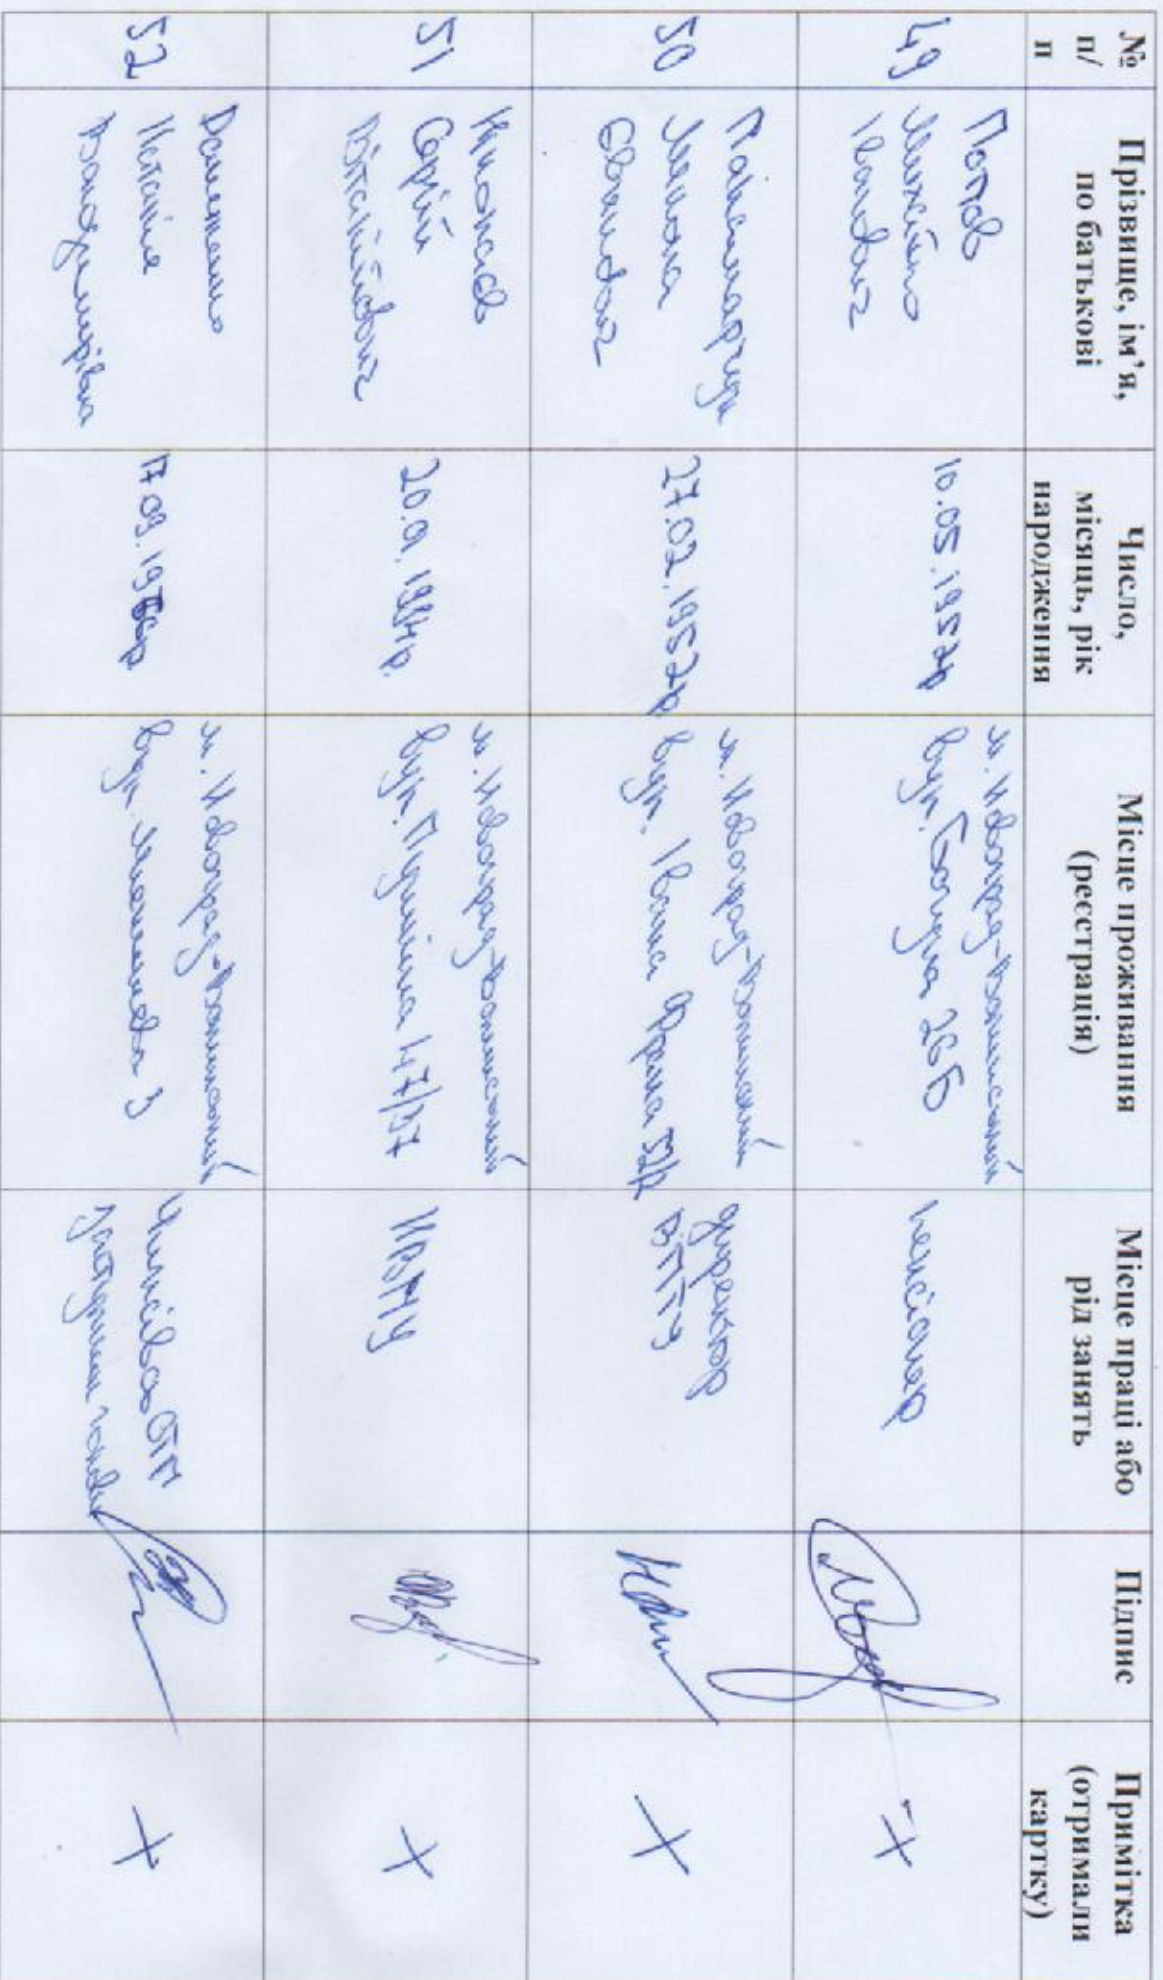 №
п/
п
Прізвище, ім’я,
по батькові
Число,
місяць, рік
народження
Місце проживання
(реєстрація)
Місце праці або
рід занять
Підпис
Примітка
(отримали
картку)
49
Попов
Михайло
Іванович
10.05.1957р
м. Новоград-Волинський
вул. Богуна 26б
пенсіонер
+
50
Микола
Євгенович
27.02.1952р
м. Новоград-Волинський
вул. Івана Франка
директор
ВПТУ
+
51
Сергій
Віталійович
м. Новоград-Волинський
вул. Пушкіна 47/37
+
52
Наталія
Володимирівна
17.09.
м. Новоград-Волинський
вул. 3
ОТГ
+